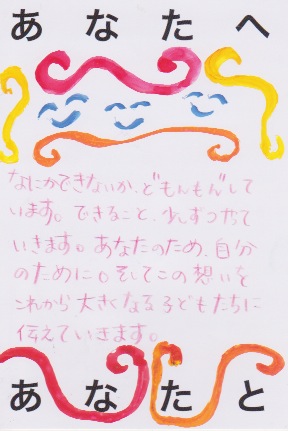 あなたへ
なにかできないか、どもんもんして
います。できること、少しずつやって
いきます。あなたのため、自分
のために。そしてこの想いを
これから大きくなる子どもたちに
伝えていきます。
あなたと